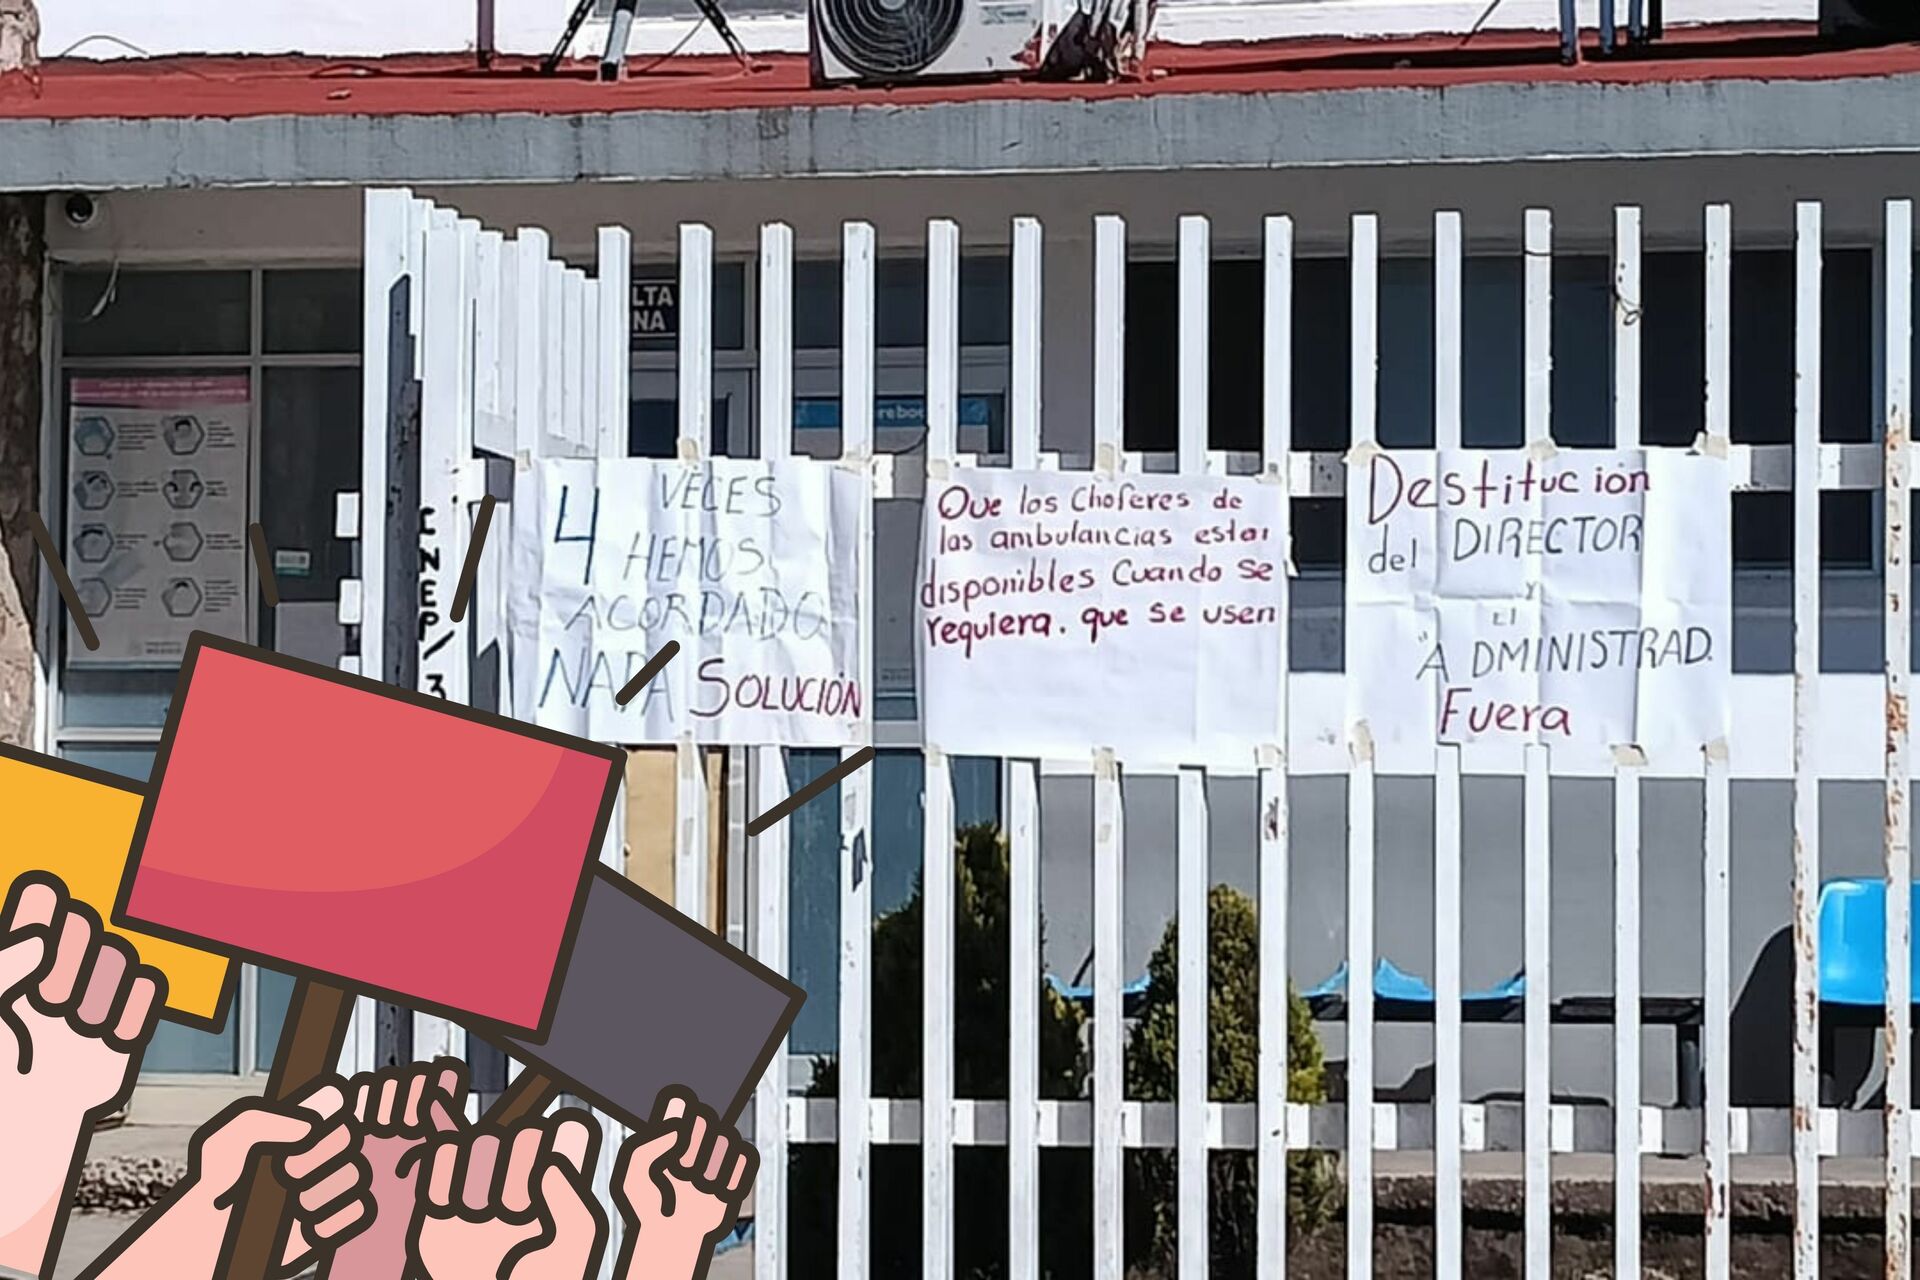 LTA
NA
CNEP/3
4 VECES
HEMOS
ACORDADO
NADA SOLUCIÓN
Que los choferes de
las ambulancias estar
disponibles Cuando se
requiera. que se usen
Destitución
del DIRECTOR
Y
El
"ADMINISTRAD.
Fuera